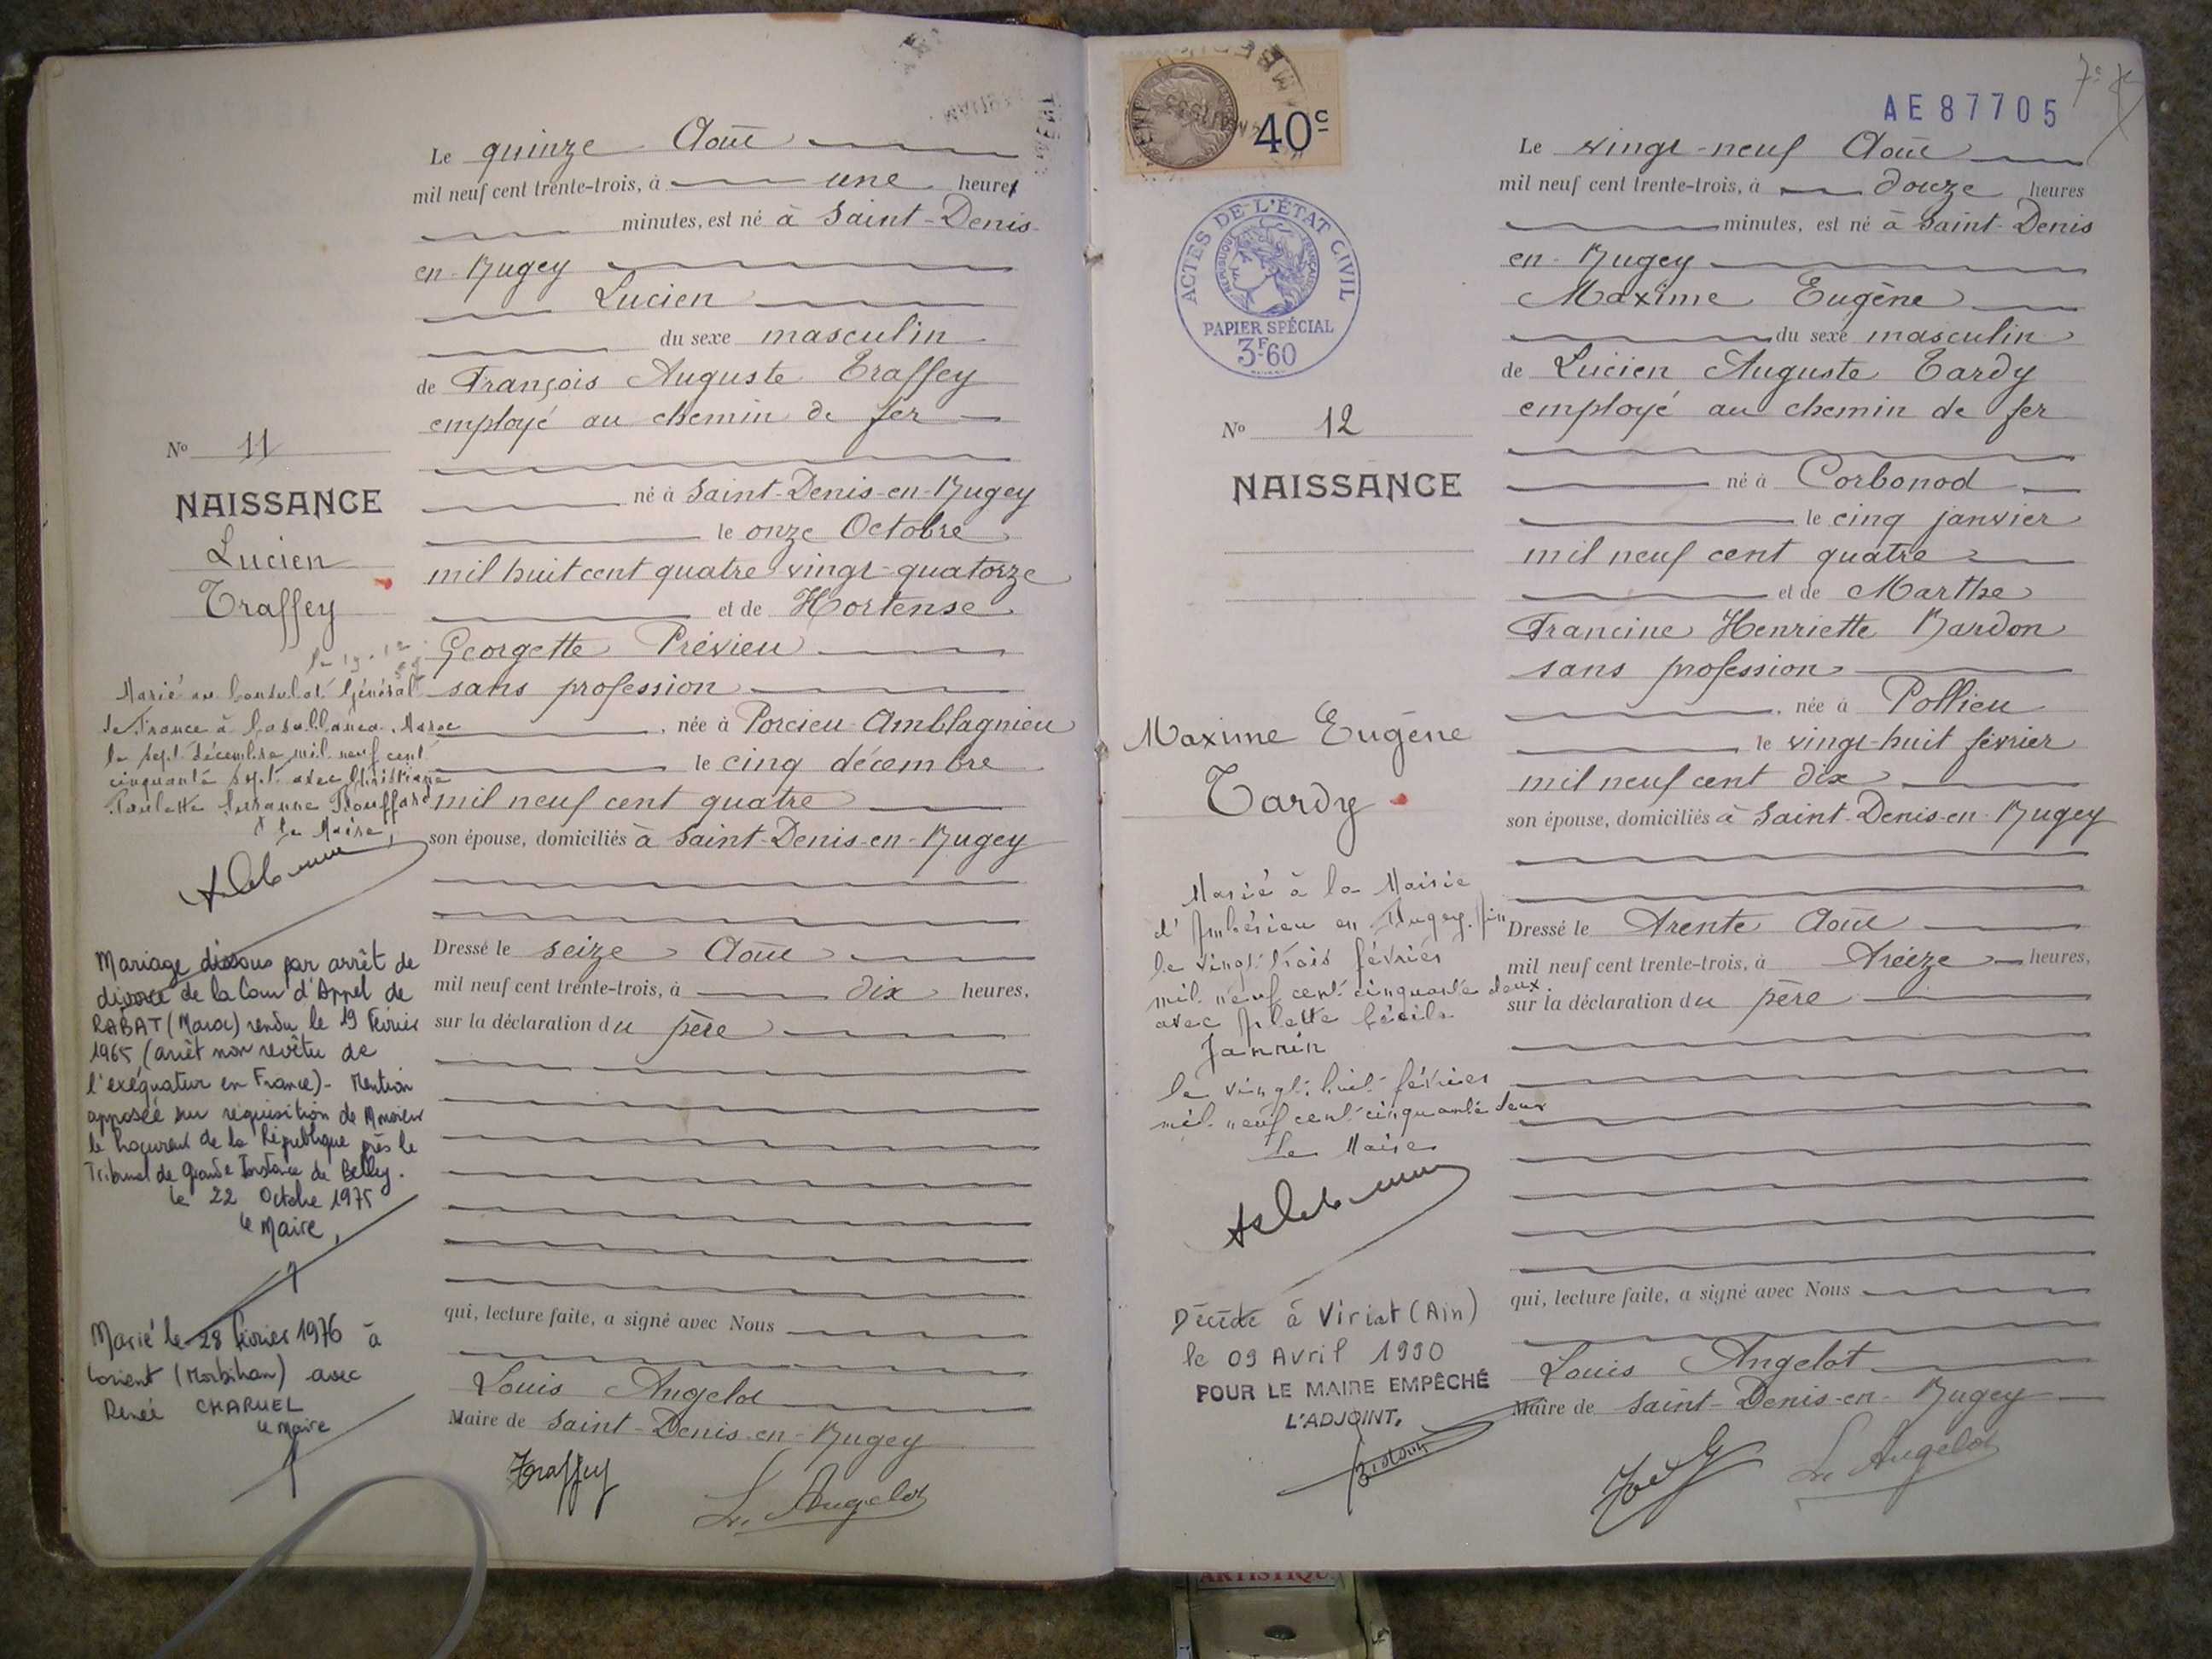 Le quinze Août
mil neuf cent trente-trois, à une heure
minutes, est né à Saint-Denis
en-Bugey
Lucien
du sexe masculin
de François Auguste Traffey
employé au chemin de fer
né à Saint-Denis-en-Bugey
le onze Octobre
mil huit cent quatre vingt-quatorze
et de Hortense
Georgette Prévieu
sans profession
née à Porcieu-Amblagnieu
le cinq décembre
mil neuf cent quatre
son épouse, domiciliés à Saint-Denis-en-Bugey
Dressé le seize Août
mil neuf cent trente-trois, à dix heures,
sur la déclaration du père
qui, lecture faite, a signé avec Nous
Louis Angelot
Maire de Saint-Denis-en-Bugey
Traffey
L. Angelot
No 11
NAISSANCE
Lucien
Traffey
Marié au Consulat Général
de France à Casablanca. Maroc
le sept décembre mil neuf cent
cinquante sept avec Christiane
Paulette Suzanne
le Maire,
Mariage dissous par arrêt de
divorce de la Cour d'Appel de
RABAT (Maroc) rendu le 19 Février
1965 (arrêt non revêtu de
l'exéquatur en France)- Mention
apposée sur réquisition de Monsieur
le Procureur de la République près le
Tribunal de Grande Instance de Belley.
le 22 Octobre 1975
le Maire,
Marié le 28 février 1976 à
Lorient (Morbihan) avec
Renée CHARUEL
le Maire
40c
ACTES DE L'ÉTAT CIVIL
RÉPUBLIQUE FRANÇAISE
PAPIER SPÉCIAL
3F60
AE87705
Le vingt-neuf Août
mil neuf cent trente-trois, à douze heures
minutes, est né à Saint-Denis
en-Bugey
Maxime Eugène
du sexe masculin
de Lucien Auguste Tardy
employé au chemin de fer
né à Corbonod
le cinq janvier
mil neuf cent quatre
et de Marthe
Francine Henriette Bardon
sans profession
née à Pollieu
le vingt-huit février
mil neuf cent dix
son épouse, domiciliés à Saint-Denis-en-Bugey
Dressé le trente Août
mil neuf cent trente-trois, à treize heures,
sur la déclaration du père
qui, lecture faite, a signé avec Nous
Louis Angelot
Maire de Saint-Denis-en-Bugey
L. Angelot
No 12
NAISSANCE
Maxime Eugène
Tardy
Marié à la Mairie
d'Ambérieu en Bugey. Ain
le vingt trois février
mil neuf cent cinquante deux
avec Arlette Cécile
Jannin
le vingt huit février
mil neuf cent cinquante deux
Le Maire
Décédé à Viriat (Ain)
le 09 Avril 1990
POUR LE MAIRE EMPÊCHÉ
L'ADJOINT,
ARTISTIQU